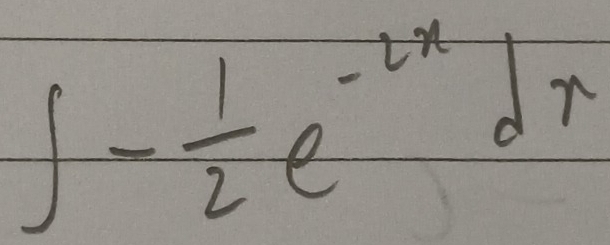 ∫ -1/2 e^{-2x} dx